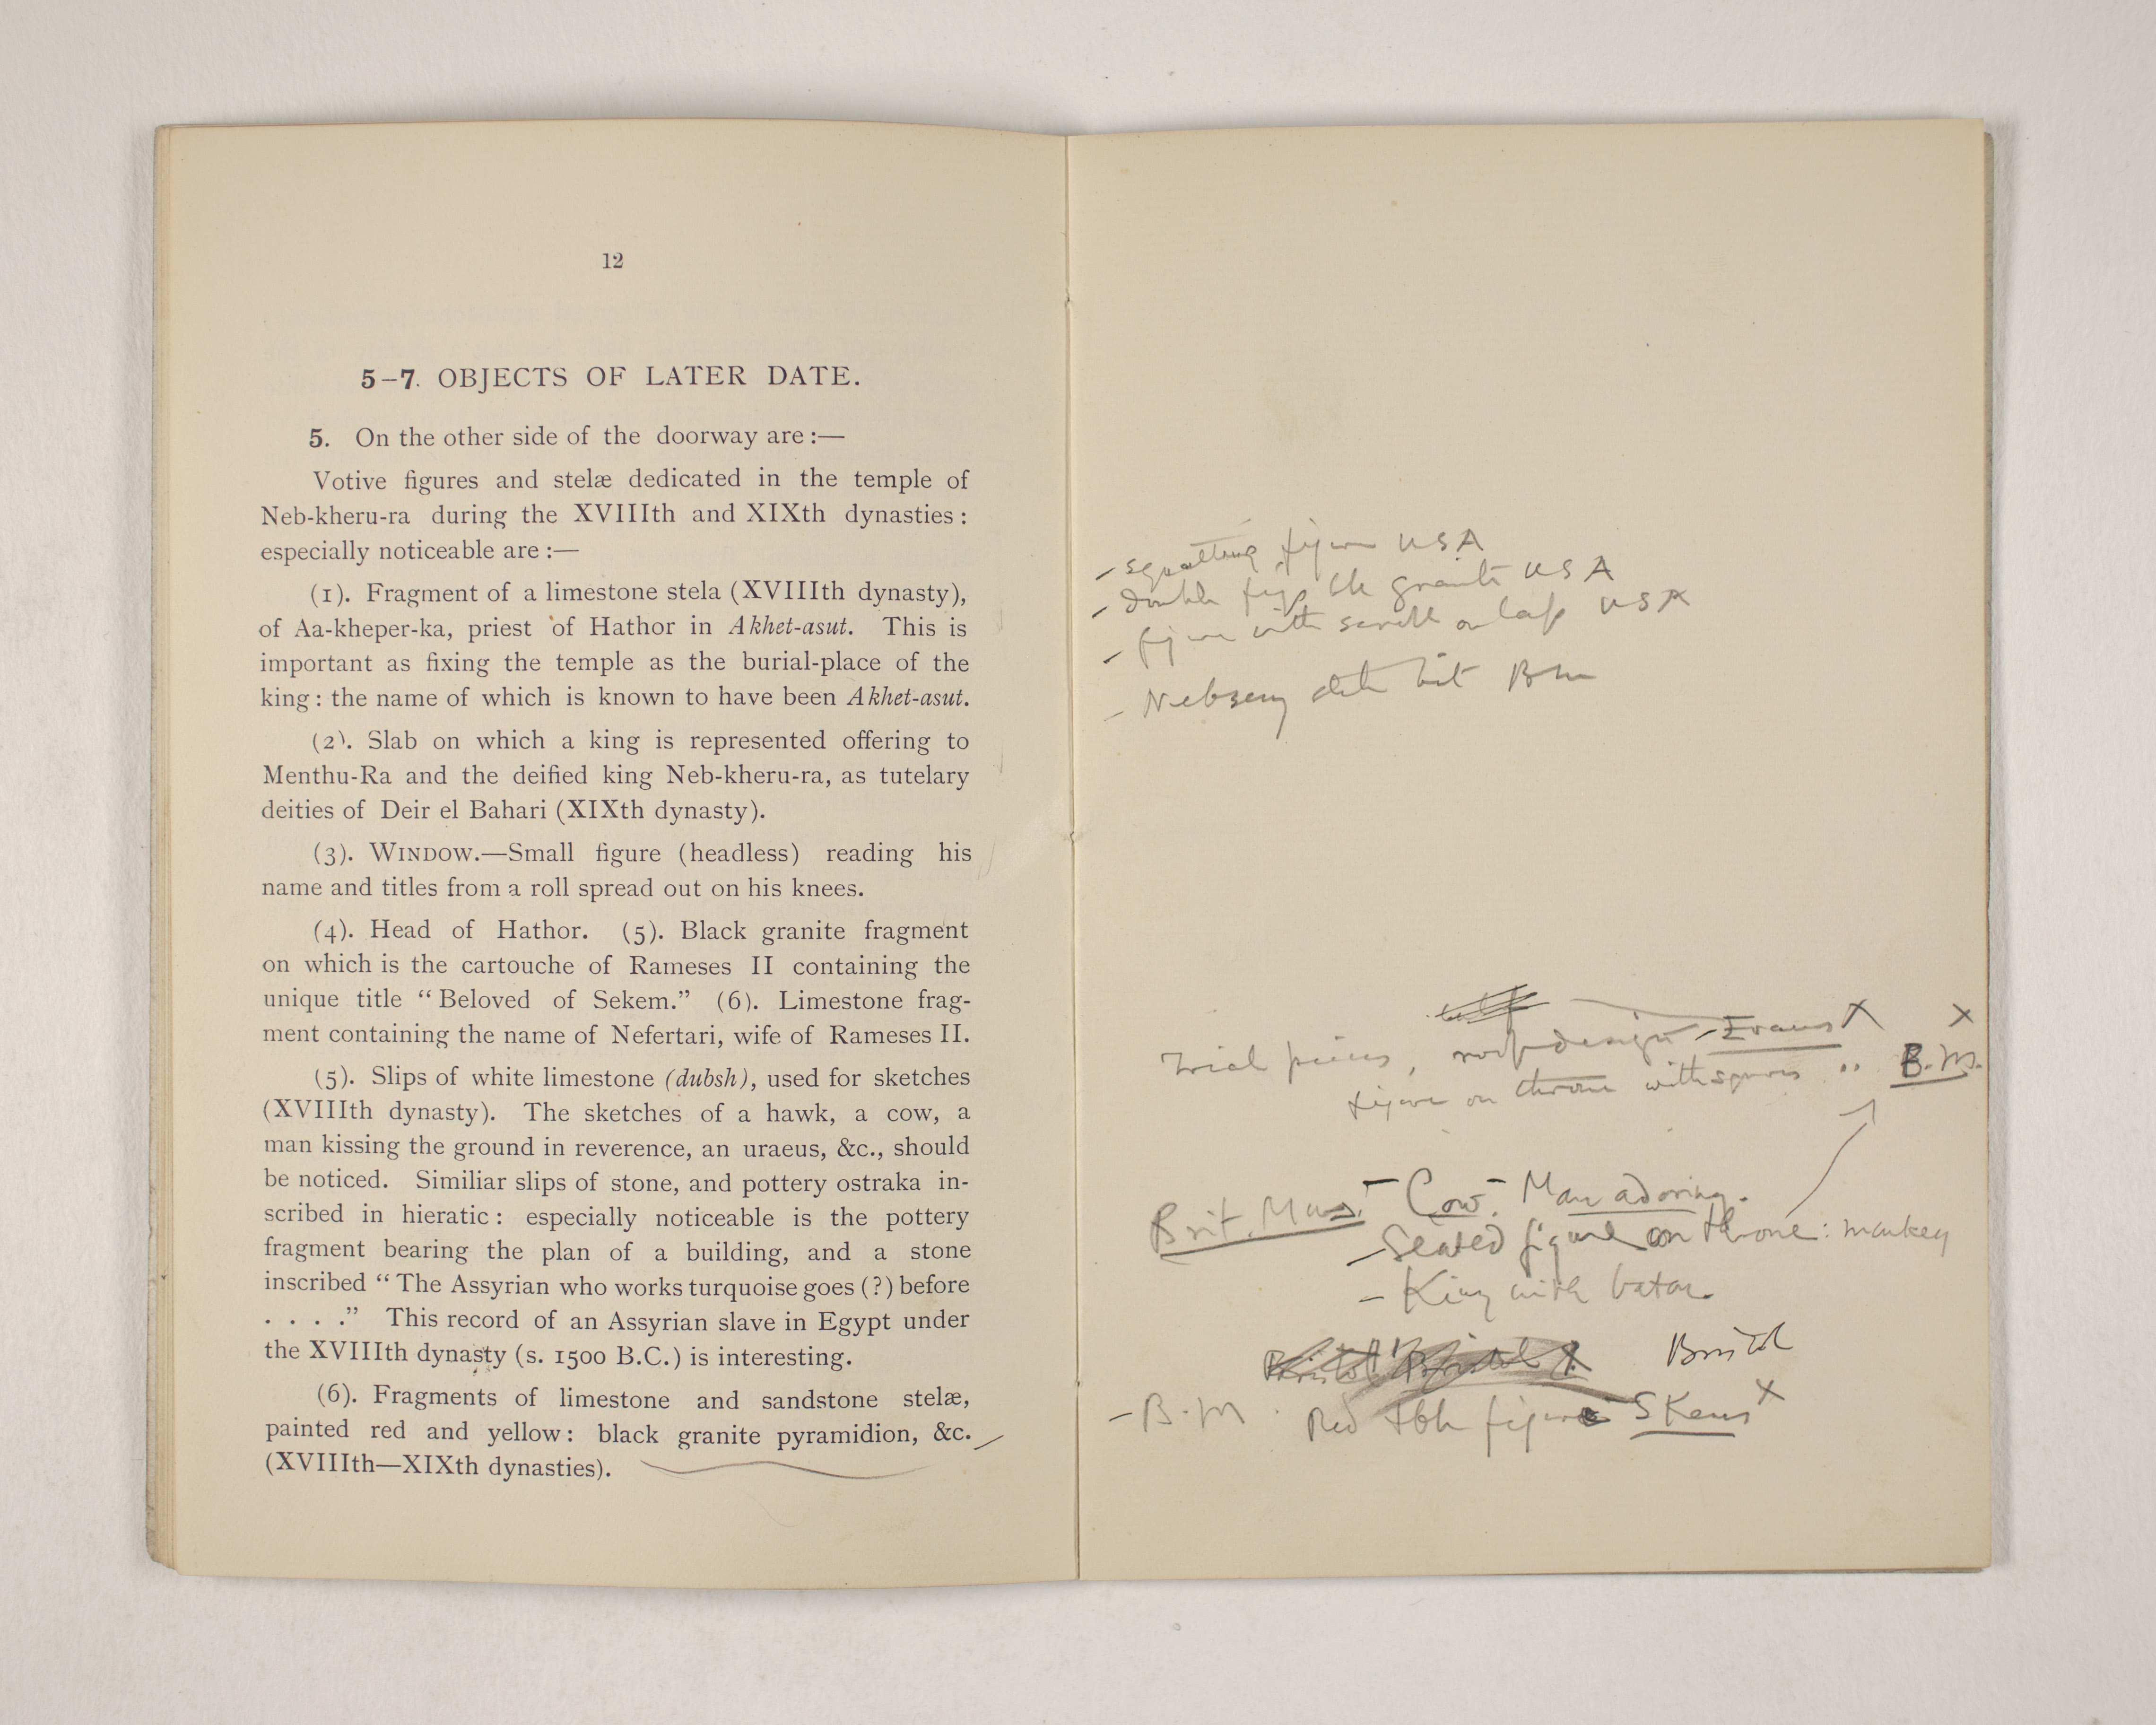 12
5–7. OBJECTS OF LATER DATE.
5. On the other side of the doorway are :—
Votive figures and stelæ dedicated in the temple of
Neb-kheru-ra during the XVIIIth and XIXth dynasties :
especially noticeable are :—
(1). Fragment of a limestone stela (XVIIIth dynasty),
of Aa-kheper-ka, priest of Hathor in Akhet-asut. This is
important as fixing the temple as the burial-place of the
king : the name of which is known to have been Akhet-asut.
(2). Slab on which a king is represented offering to
Menthu-Ra and the deified king Neb-kheru-ra, as tutelary
deities of Deir el Bahari (XIXth dynasty).
(3). WINDOW.—Small figure (headless) reading his
name and titles from a roll spread out on his knees.
(4). Head of Hathor. (5). Black granite fragment
on which is the cartouche of Rameses II containing the
unique title “Beloved of Sekem.” (6). Limestone frag-
ment containing the name of Nefertari, wife of Rameses II.
(5). Slips of white limestone (dubsh), used for sketches
(XVIIIth dynasty). The sketches of a hawk, a cow, a
man kissing the ground in reverence, an uraeus, &c., should
be noticed. Similiar slips of stone, and pottery ostraka in-
scribed in hieratic : especially noticeable is the pottery
fragment bearing the plan of a building, and a stone
inscribed “The Assyrian who works turquoise goes (?) before
. . . .” This record of an Assyrian slave in Egypt under
the XVIIIth dynasty (s. 1500 B.C.) is interesting.
(6). Fragments of limestone and sandstone stelæ,
painted red and yellow : black granite pyramidion, &c.
(XVIIIth—XIXth dynasties).
- squatting figure USA
- double figs blk granite USA
- figure with scroll on lap USA
- Nebseny bit BM
Trial pieces, roof design - Evans X X
figure on throne with " B.M.
Brit. Mus. - Cow - Man adoring.
- Seated figure on throne : monkey
- King with baton
Bristol
- B.M. Red figure Skens X